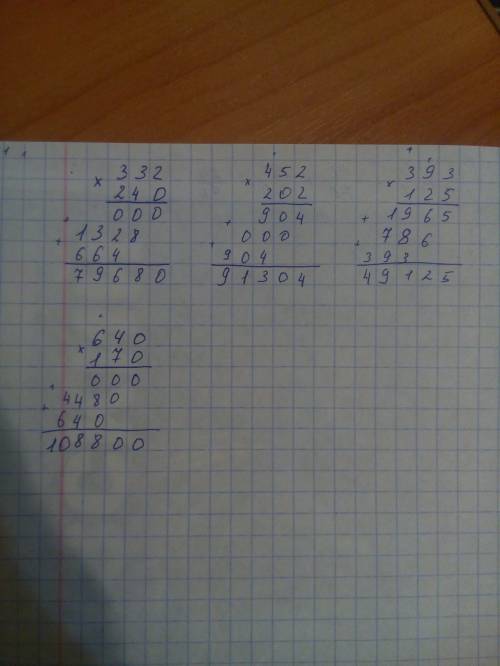 × 332
240
000
+ 1328
+ 664
79680
× 452
202
+ 904
+ 000
904
91304
× 393
125
+ 1965
+ 786
393
49125
× 640
170
000
+ 4480
+ 640
108800